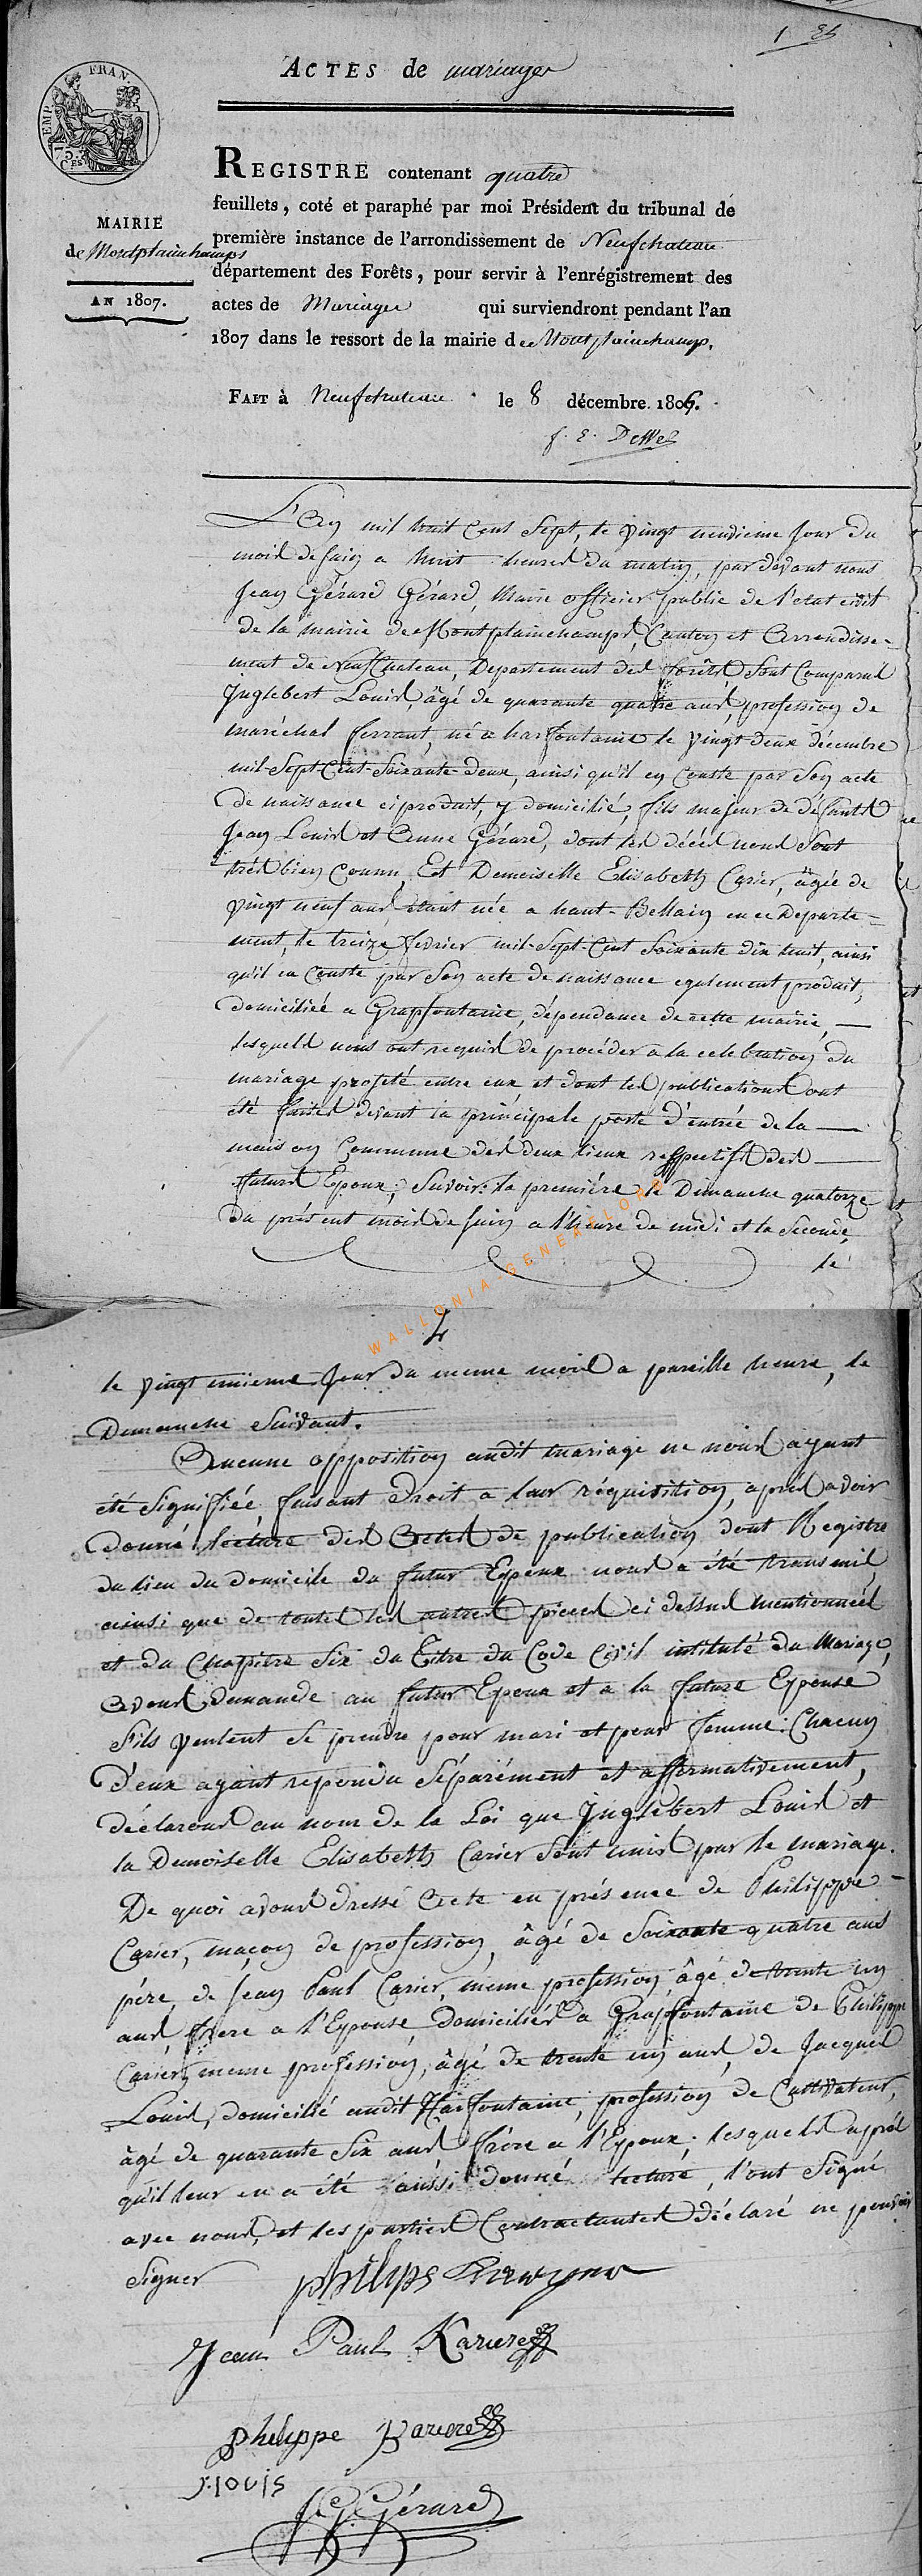 1 Et
ACTES de mariages
EMP. FRAN.
75 CES
MAIRIE
de Montplainchamps
AN 1807.
REGISTRE contenant quatre
feuillets, coté et paraphé par moi Président du tribunal de
première instance de l'arrondissement de Neufchateau
département des Forêts, pour servir à l'enrégistrement des
actes de Mariages qui surviendront pendant l'an
1807 dans le ressort de la mairie de Montplainchamp.
FAIT à Neufchateau le 8 décembre 1806.
L'An mil huit Cent Sept, le vingt neuvieme Jour du
mois de Juin a huit heures du matin, par devant nous
Jean Gérard Gérard, Maire officier public de l'etat civil
de la mairie de Montplainchamps, Canton et Arrondisse-
ment de Neufchateau, Departement des forêts, Sont Comparus
Inglebert Louis, âgé de quarante quatre ans, profession de
maréchal ferrant, né a harfontaine le vingt deux décembre
mil-Sept-Cent-Soixante-deux, ainsi qu'il en Conste par Son acte
de naissance ci produit, y domicilié, fils majeur de défunts
Jean Louis et Anne Gérard, dont les décès nous Sont
très bien Connu, Et Demoiselle Elisabeth Carier, âgée de
vingt neuf ans, étant née a haut-Bellain en ce Departe-
ment, le treize fevrier mil-Sept-Cent Soixante dix huit, ainsi
qu'il en Conste par Son acte de naissance egalement produit,
domiciliée a Grapfontaine, dépendance de cette mairie,
lesquels nous ont requis de procéder a la celebration du
mariage projeté entre eux, et dont les publications ont
été faites devant la principale porte d'entrée de la
maison Commune des deux lieux respectifs des
futurs Epoux; Savoir: la première le Dimanche quatorze
du présent mois de Juin a l'heure de midi et la Seconde,
le
WALLONIA-GENEA
4
le vingt unieme Jour du meme mois a pareille heure, le
Dimanche Suivant.
Aucune opposition audit mariage ne nous ayant
été Signifiée, faisant droit a leur réquisition, après avoir
donné lecture des Actes de publication dont Registre
du lieu du domicile du futur Epoux nous a été transmis,
ainsi que de toutes les autres pieces ci dessus mentionnées
et du Chapitre Six du Titre du Code Civil intitulé du Mariage,
avons demandé au futur Epoux et a la future Epouse
S'ils veulent Se prendre pour mari et pour femme: Chacun
D'eux ayant repondu Séparément et affirmativement,
déclarons au nom de la Loi que Inglebert Louis et
la Demoiselle Elisabeth Carier Sont unis par le mariage.
De quoi avons dressé Acte en présence de Philippe
Carier, maçon de profession, âgé de Soixante-quatre ans
père, de Jean Paul Carier, meme profession, âgé de trente un
ans, frere a l'Epouse, domiciliés a Grapfontaine de Philippe
Carier, meme profession, âgé de trente un ans, de Jacques
Louis, domicilié audit Harfontaine, profession de Cultivateur,
âgé de quarante Six ans, frère a l'Epoux; lesquels après
qu'il leur en a été aussi donné lecture, l'ont Signé
avec nous, et les parties Contractantes déclaré ne pouvoir
Signer
philips
Jean Paul Kariere
Philippe Kariere
J: louis
J G Gérard